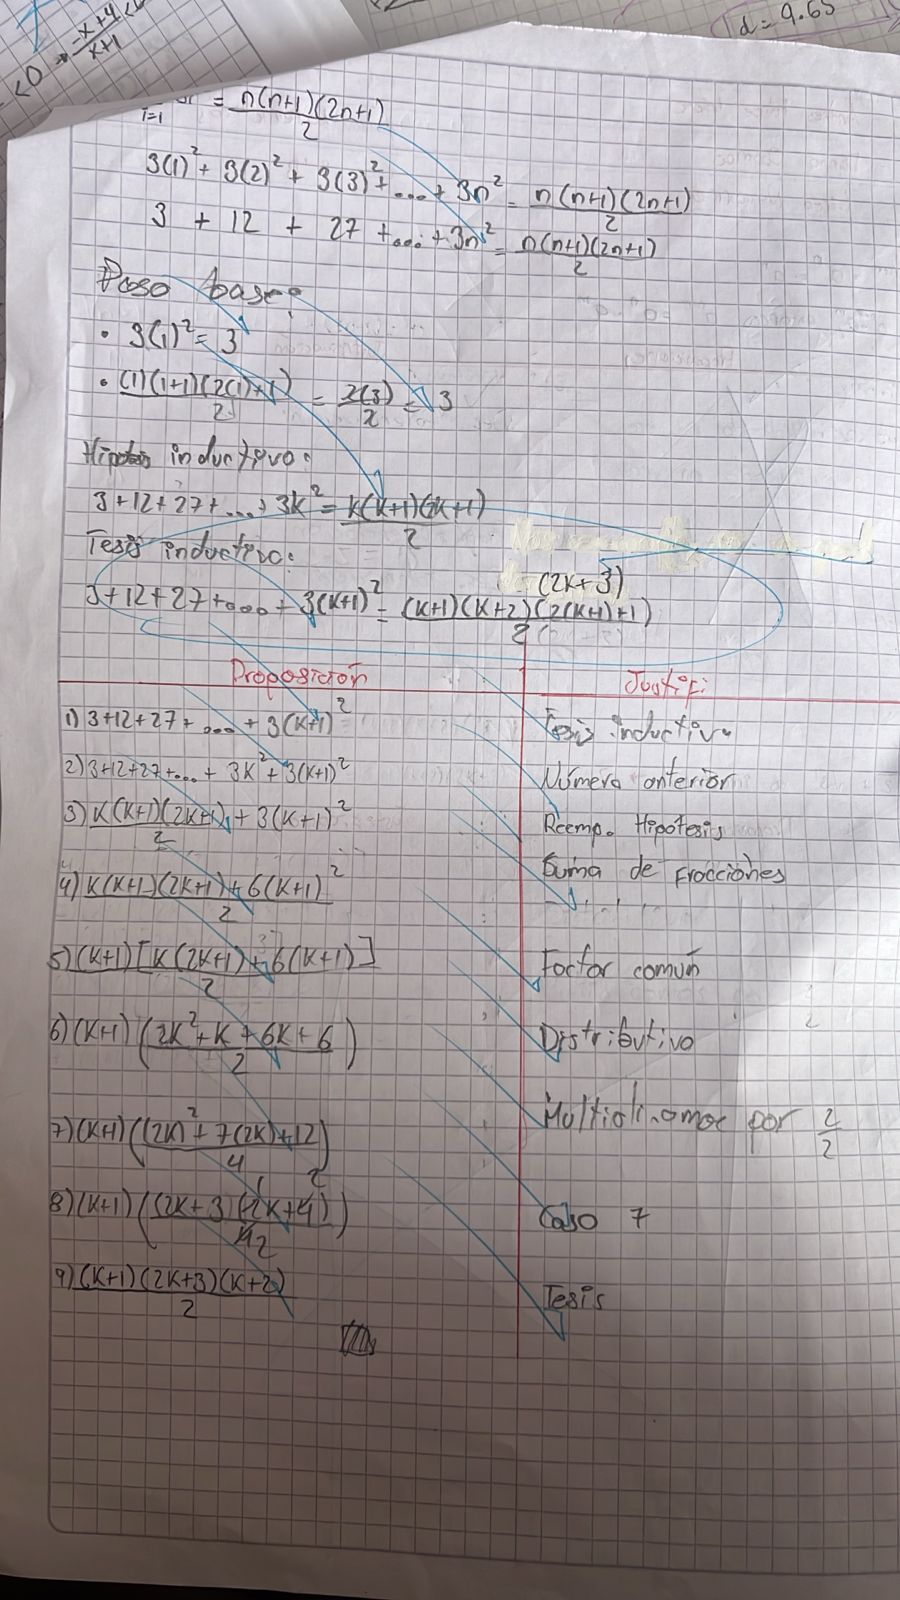 <0 → -x+4/x+1 <0
d = 9.65
i=1 = n(n+1)(2n+1)/2
3(1)² + 3(2)² + 3(3)² + .... + 3n² = n(n+1)(2n+1)/2
3 + 12 + 27 + .... + 3n² = n(n+1)(2n+1)/2
Paso base:
• 3(1)² = 3
• (1)(1+1)(2(1)+1)/2 = 2(3)/2 = 3
inductivo:
3+12+27+....+ 3k² = k(k+1)(2k+1)/2
Tesis inductivo:
(2k+3)
3+12+27+....+ 3(k+1)² = (k+1)(k+2)(2(k+1)+1)/2
Proposición Justifi:
1) 3+12+27+ .... + 3(k+1)² Tesis inductiva
2) 3+12+27+.... + 3k² + 3(k+1)² Número anterior
3) k(k+1)(2k+1)/2 + 3(k+1)² Reemp. Hipotesis
4) k(k+1)(2k+1) + 6(k+1)²/2 Suma de fracciones
5) (k+1)[k(2k+1) + 6(k+1)]/2 Factor común
6) (k+1)(2k²+k+6k+6/2) Distributivo
7) (k+1)((2k)²+7(2k)+12/4) por 2/2
8) (k+1)((2k+3)(2k+4)/42) Caso 7
9) (k+1)(2k+3)(k+2)/2 Tesis